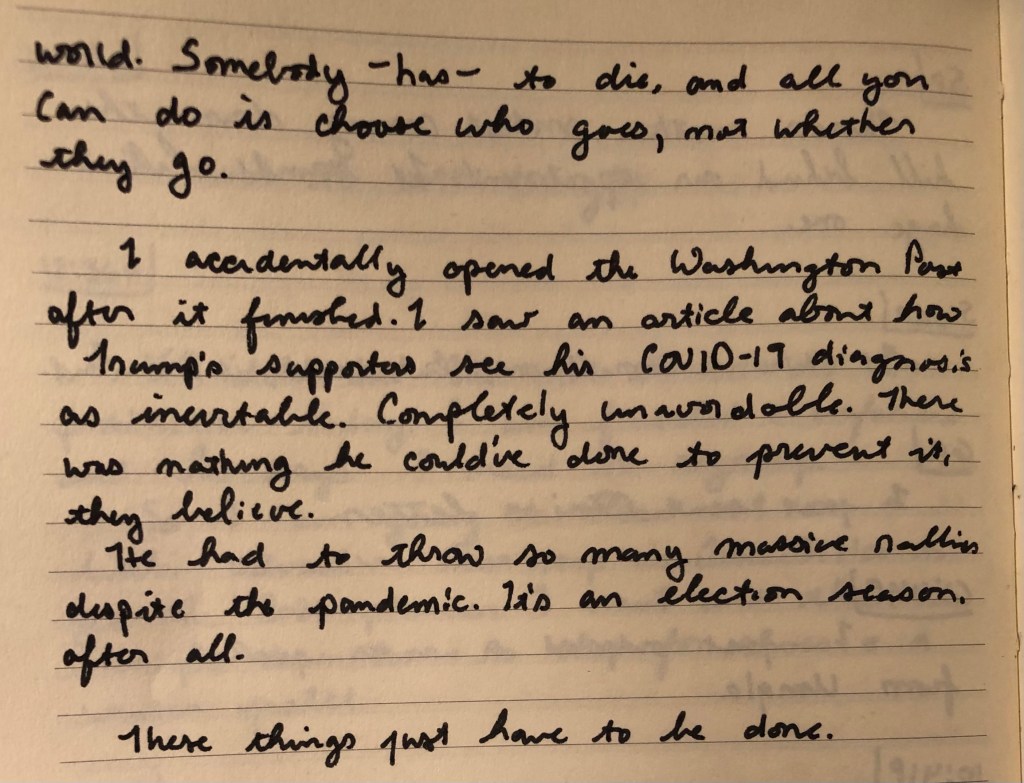 world. Somebody -has- to die, and all you
can do is choose who goes, not whether
they go.
I accidentally opened the Washington Post
after it finished. I saw an article about how
Trump's supporters see his COVID-19 diagnosis
as inevitable. Completely unavoidable. There
was nothing he could've done to prevent it,
they believe.
He had to throw so many massive rallies
despite the pandemic. It's an election season,
after all.
These things just have to be done.